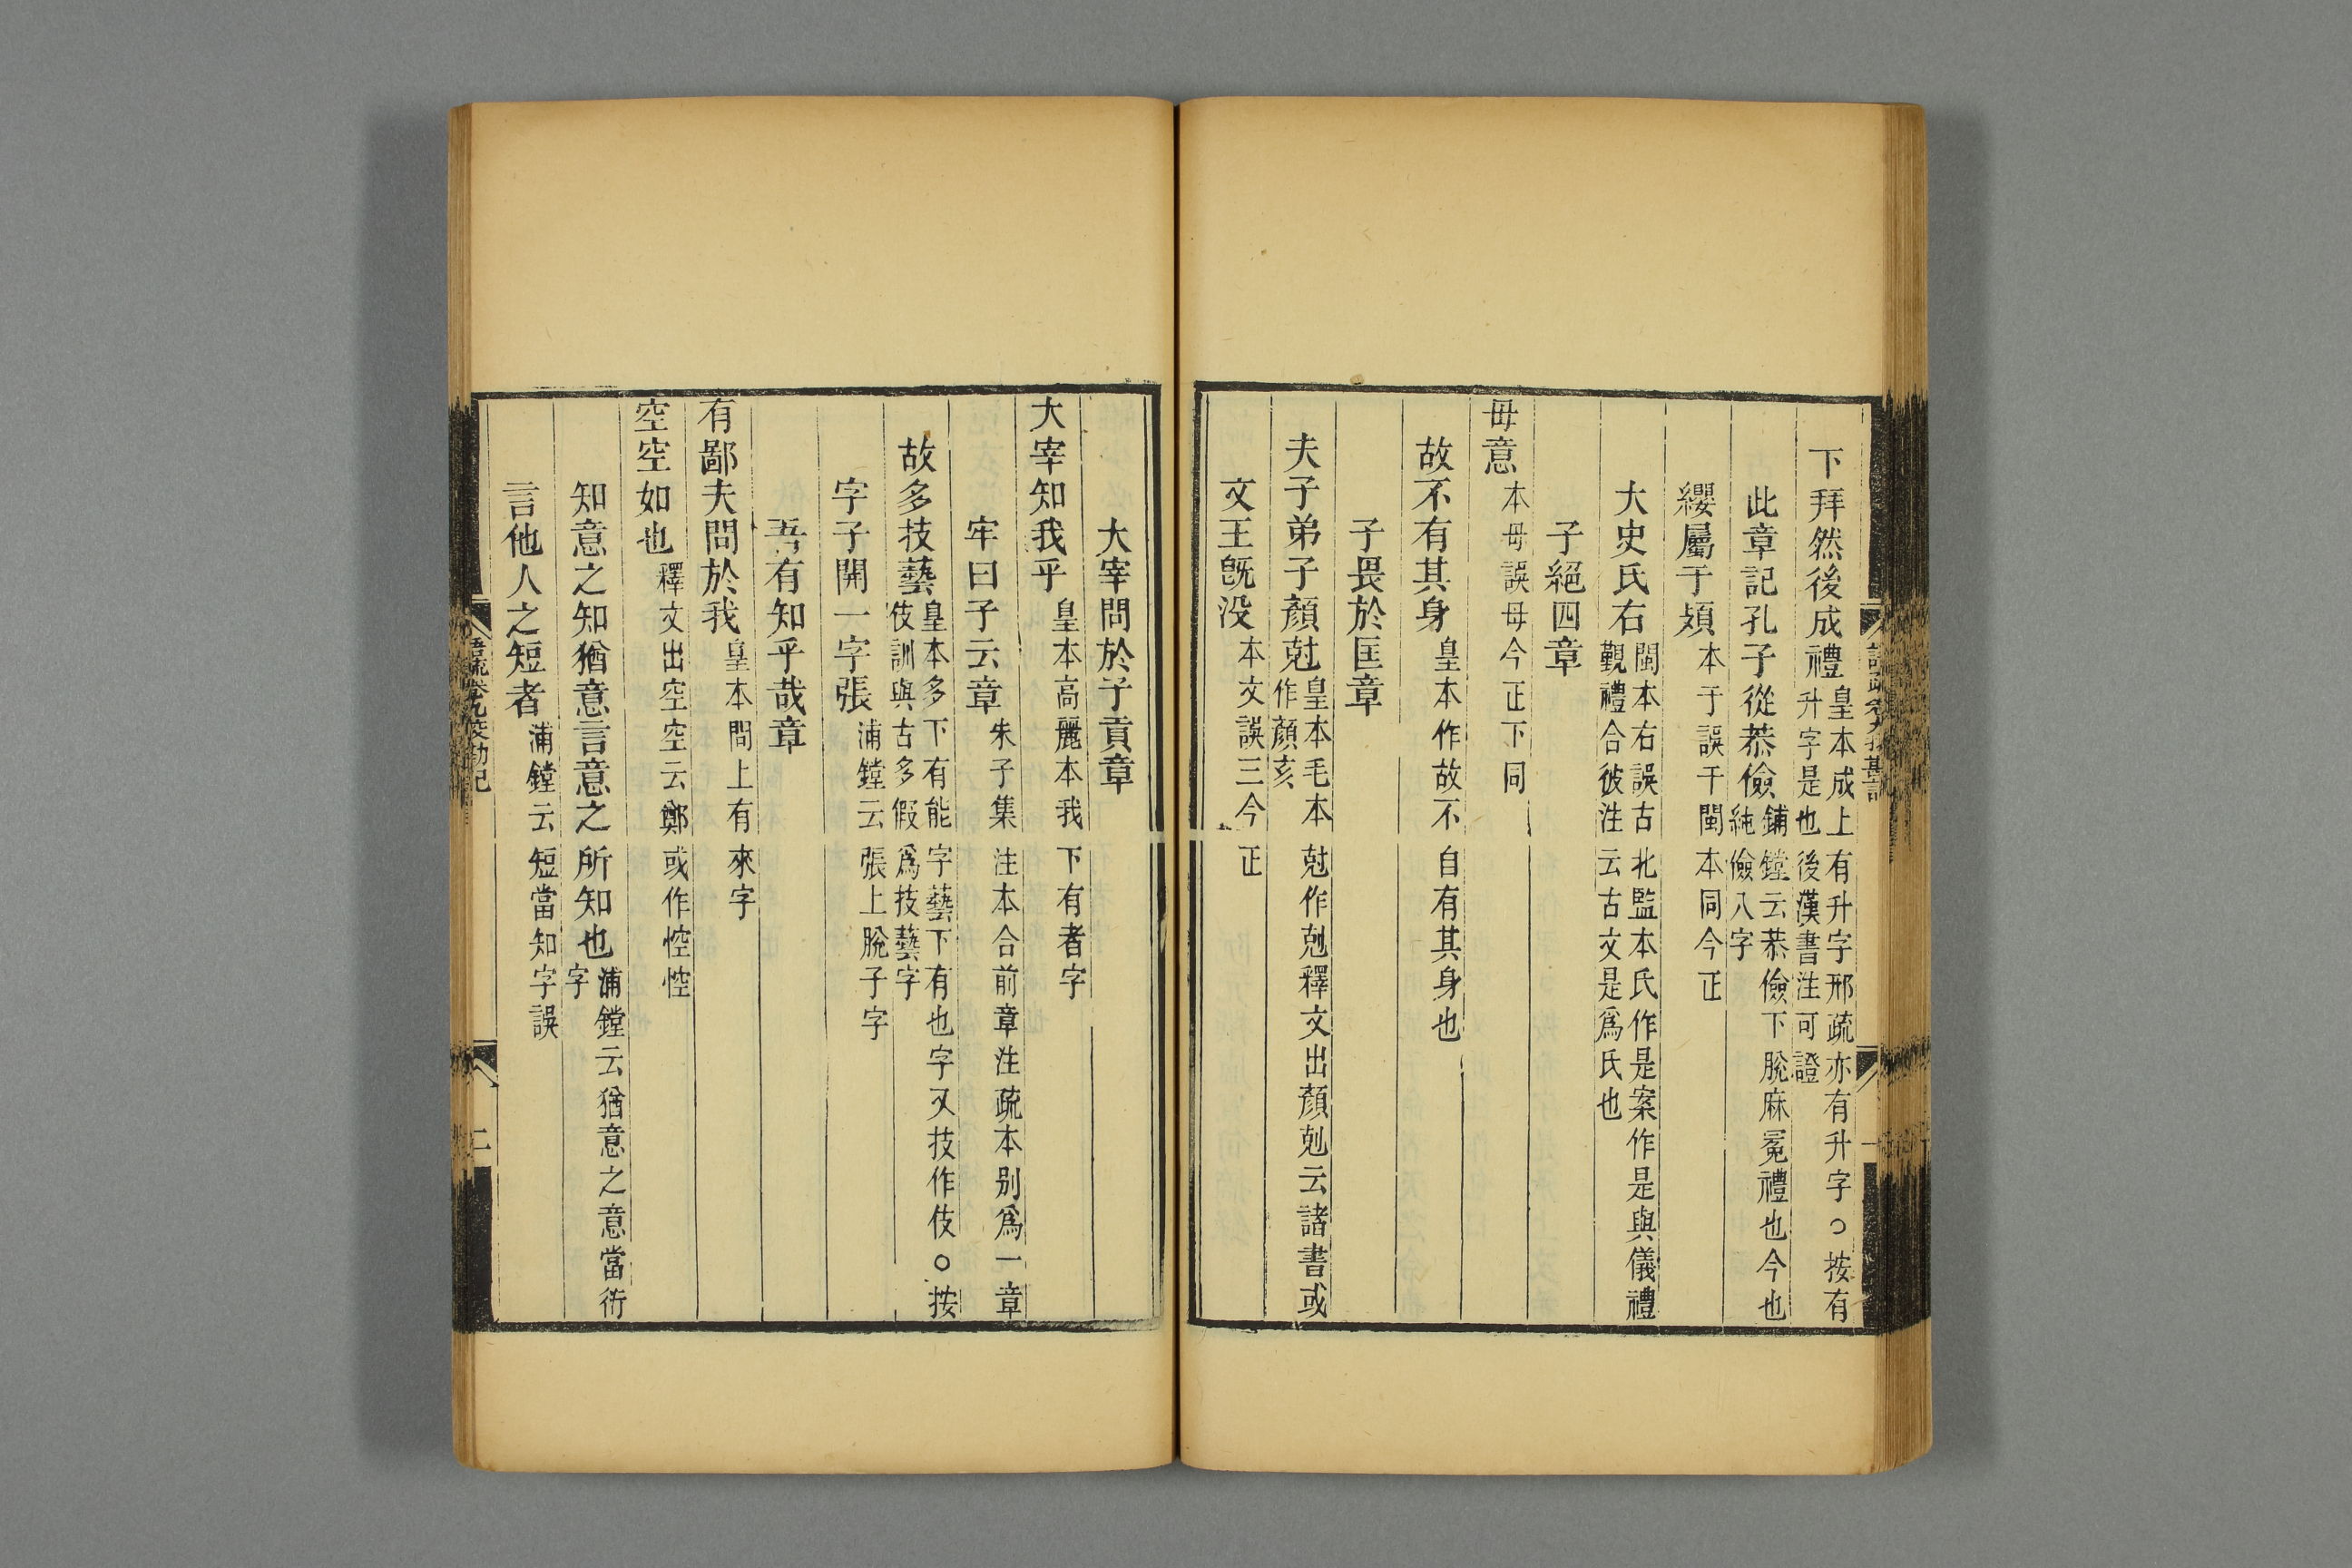 下拜然後成禮皇本成上有升字邢疏亦有升字○按有升字是也後漢書注可證
此章記孔子從恭儉鋪鏜云恭儉下脫麻冕禮也今也純儉八字
纓屬于䪼本于誤干閩本同今正
大史氏右閩本右誤古北監本氏作是案作是與儀禮覲禮合彼注云古文是爲氏也
子絕四章
毋意本毋誤母今正下同
故不有其身皇本作故不自有其身也
子畏於匡章
夫子弟子顏尅皇本毛本尅作剋釋文出顏剋云諸書或作顏亥
文王旣没本文誤三今正
大宰問於子貢章
大宰知我乎皇本高麗本我下有者字
牢曰子云章朱子集注本合前章注疏本别爲一章
故多技藝皇本多下有能字藝下有也字又技作伎○按伎訓與古多假爲技藝字
字子開一字張浦鏜云張上脫子字
吾有知乎哉章
有鄙夫問於我皇本問上有來字
空空如也釋文出空空云鄭或作悾悾
知意之知猶意言意之所知也浦鏜云猶意之意當衍字
言他人之短者浦鏜云短當知字誤
語疏卷九校勘記
二